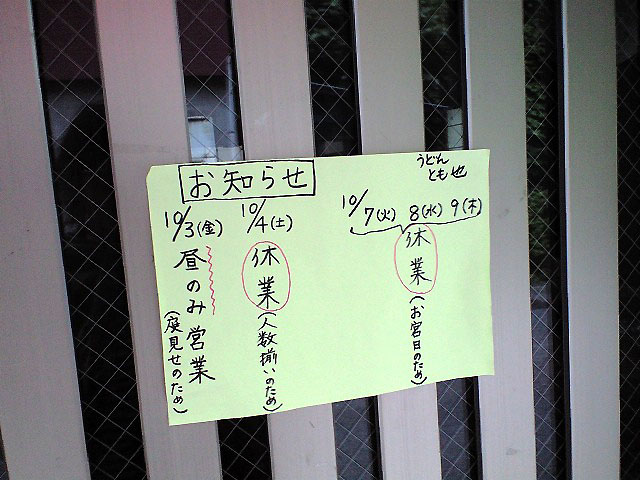 お知らせ
うどん
とも也
10/3(金)
昼のみ営業
(庭見せのため)
10/4(土)
休業
(人数揃いのため)
10/7(火) 8(水) 9(木)
休業
(お宮日のため)